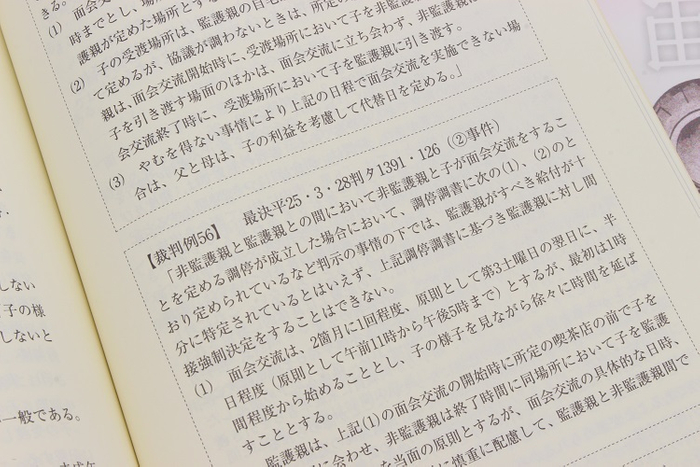 きる。
(1)
時までとし、場
護親が定めた場所とする
子の受渡場所は、監護親の自宅
(2) て定めるが、協議が調わないときは、所定の
親は、面会交流開始時に、受渡場所において子を非監
子を引き渡す場面のほかは、面会交流に立ち会わず、非監護親
会交流終了時に、受渡場所において子を監護親に引き渡す。
(3) やむを得ない事情により上記の日程で面会交流を実施できない場
合は、父と母は、子の利益を考慮して代替日を定める。」
【裁判例56】 最決平25・3・28判タ1391・126(②事件)
「非監護親と監護親との間において非監護親と子が面会交流をするこ
とを定める調停が成立した場合において、調停調書に次の(1)、(2)のと
おり定められているなど判示の事情の下では、監護親がすべき給付が十
分に特定されているとはいえず、上記調停調書に基づき監護親に対し間
接強制決定をすることはできない。
(1) 面会交流は、2箇月に1回程度、原則として第3土曜日の翌日に、半
日程度(原則として午前11時から午後5時まで)とするが、最初は1時
間程度から始めることとし、子の様子を見ながら徐々に時間を延ば
すこととする。
監護親は、上記(1)の面会交流の開始時に所定の喫茶店の前で子を
に会わせ、非監護親は終了時間に同場所において子を監護
を当面の原則とするが、面会交流の具体的な日時、
に慎重に配慮して、監護親と非監護親間で
しない
子の様
しないと
一般である。